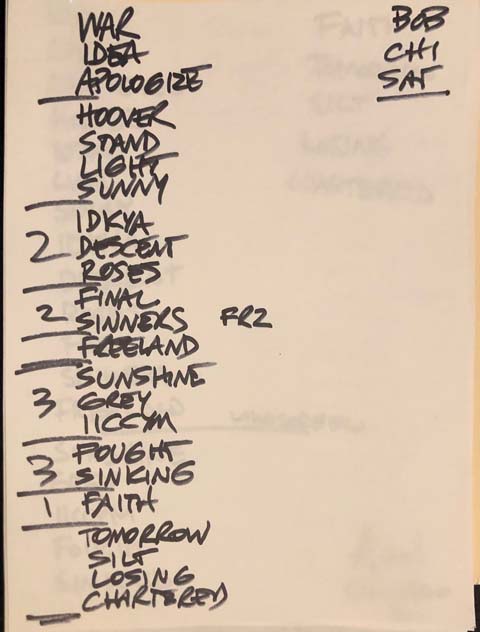 BOB
CHI
SAT
WAR
IDEA
APOLOGIZE
HOOVER
STAND
LIGHT
SUNNY
IDKYA
2 DESCENT
ROSES
FINAL
2 SINNERS FRZ
FREELAND
SUNSHINE
3 GREY
IICCYM
FOUGHT
3 SINKING
1 FAITH
TOMORROW
SILT
LOSING
CHARTERED